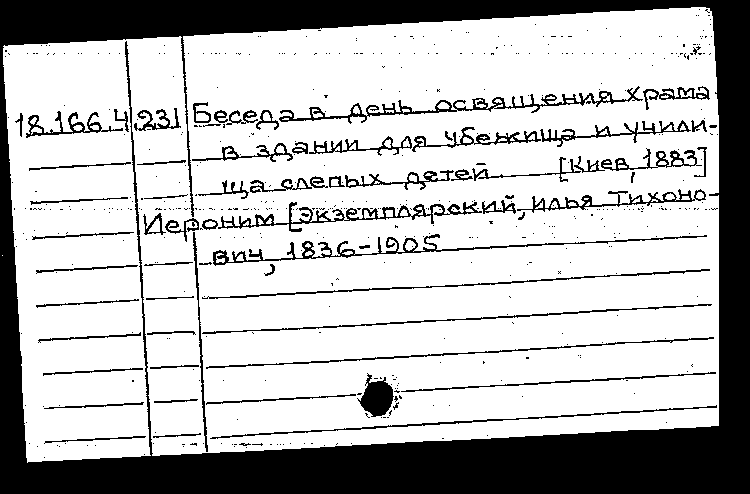 18.166.4.231 Беседа в день освящения храма
в здании для убежища и учили-
ща слепых детей. [Киев, 1883]
Иероним [Экземплярский, Илья Тихоно-
вич, 1836-1905